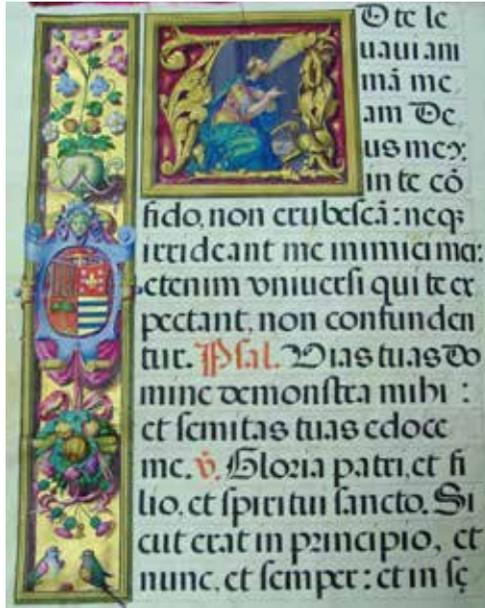 D te le
uaui ani
mā me
am De
us meꝰ:
in te cō
fido, non erubescā: neqꝫ
irrideant me inimici mei:
etenim vniuersi qui te ex
pectant, non confunden
tur. Psal. Vias tuas Do
mine demonstra mihi :
et semitas tuas edoce
me. v̄. Gloria patri, et fi
lio, et spiritui sancto. Si
cut erat in principio, et
nunc, et semper: et in sę